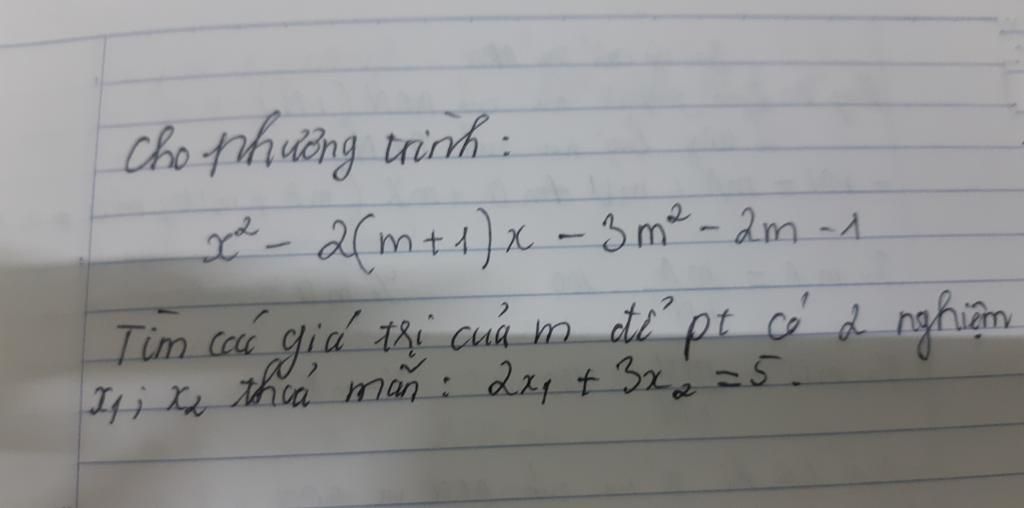 Cho phương trình:
x² - 2(m+1)x - 3m² - 2m - 1
Tìm các giá trị của m để pt có 2 nghiệm
x₁; x₂ thoả mãn: 2x₁ + 3x₂ = 5.